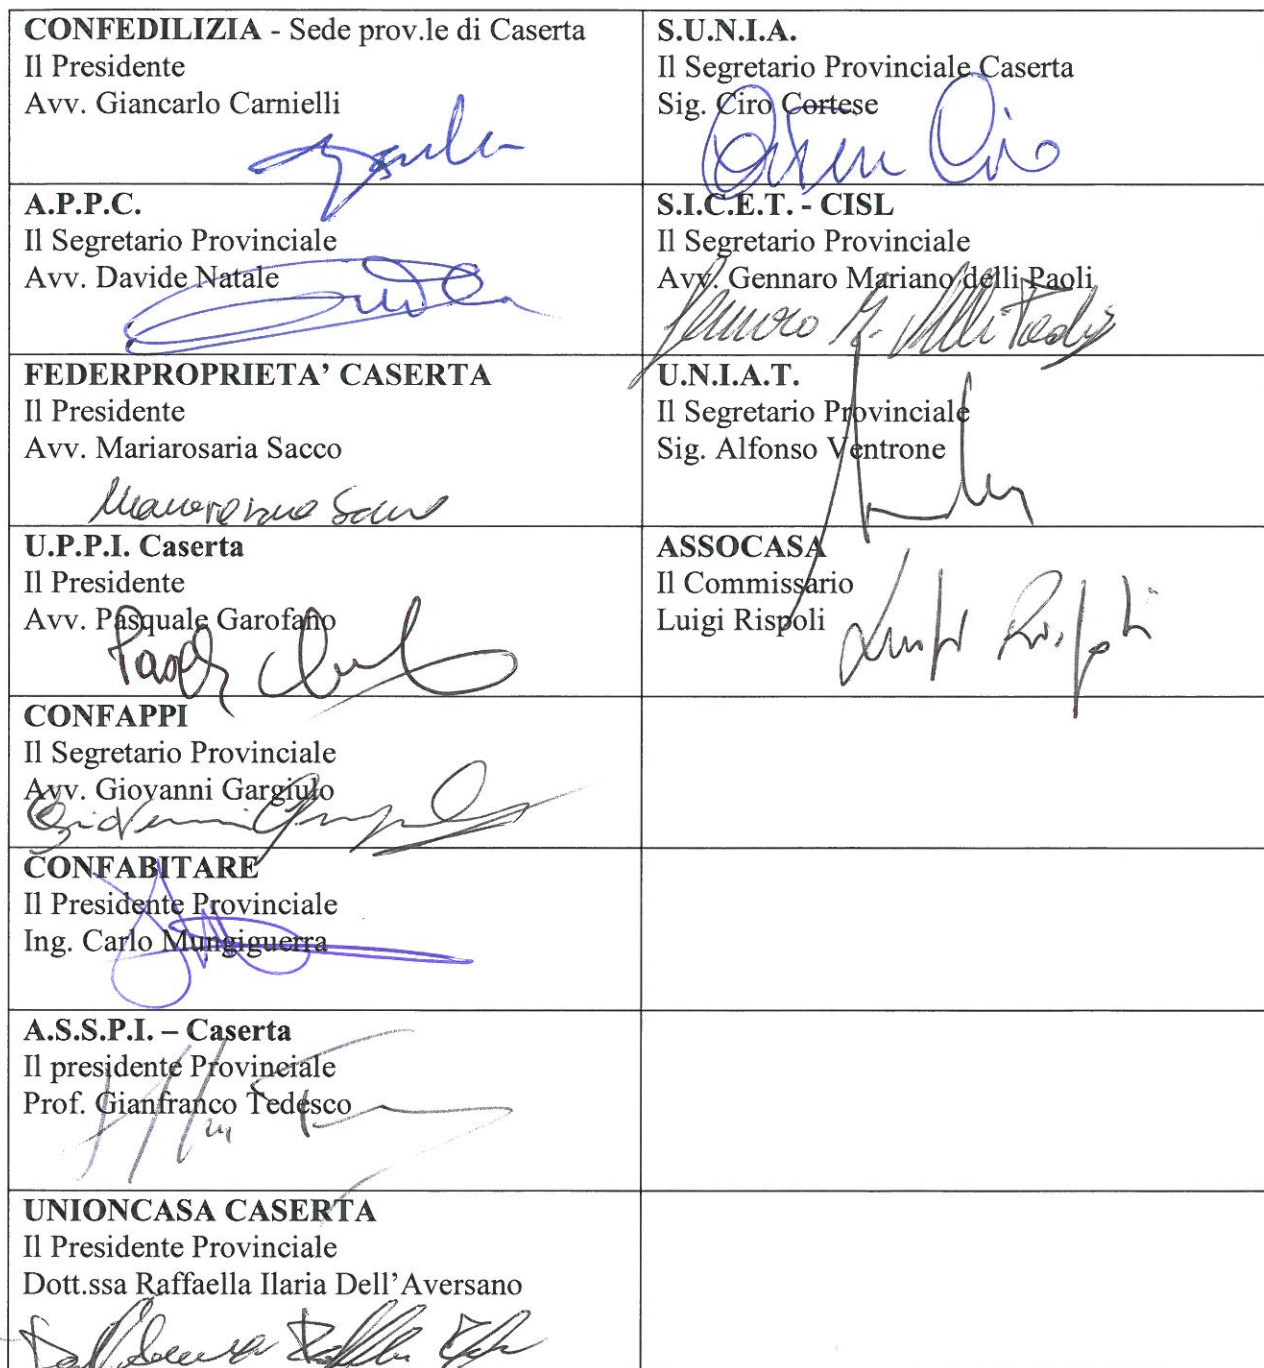 CONFEDILIZIA - Sede prov.le di Caserta
Il Presidente
Avv. Giancarlo Carnielli
S.U.N.I.A.
Il Segretario Provinciale Caserta
Sig. Ciro Cortese
A.P.P.C.
Il Segretario Provinciale
Avv. Davide Natale
S.I.C.E.T. - CISL
Il Segretario Provinciale
Avv. Gennaro Mariano delli Paoli
FEDERPROPRIETA’ CASERTA
Il Presidente
Avv. Mariarosaria Sacco
U.N.I.A.T.
Il Segretario Provinciale
Sig. Alfonso Ventrone
U.P.P.I. Caserta
Il Presidente
Avv. Pasquale Garofano
ASSOCASA
Il Commissario
Luigi Rispoli
Luigi Rispoli
CONFAPPI
Il Segretario Provinciale
Avv. Giovanni Gargiulo
CONFABITARE
Il Presidente Provinciale
Ing. Carlo Mungiguerra
A.S.S.P.I. – Caserta
Il presidente Provinciale
Prof. Gianfranco Tedesco
UNIONCASA CASERTA
Il Presidente Provinciale
Dott.ssa Raffaella Ilaria Dell’Aversano